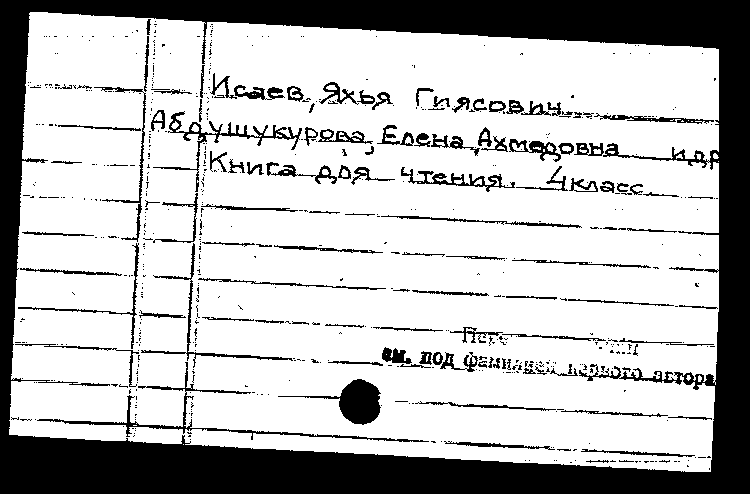 Исаев, Яхья Гиясович.
Абдушукурова, Елена Ахмедовна и др
Книга для чтения. 4 класс.
см. под фамилией первого автора